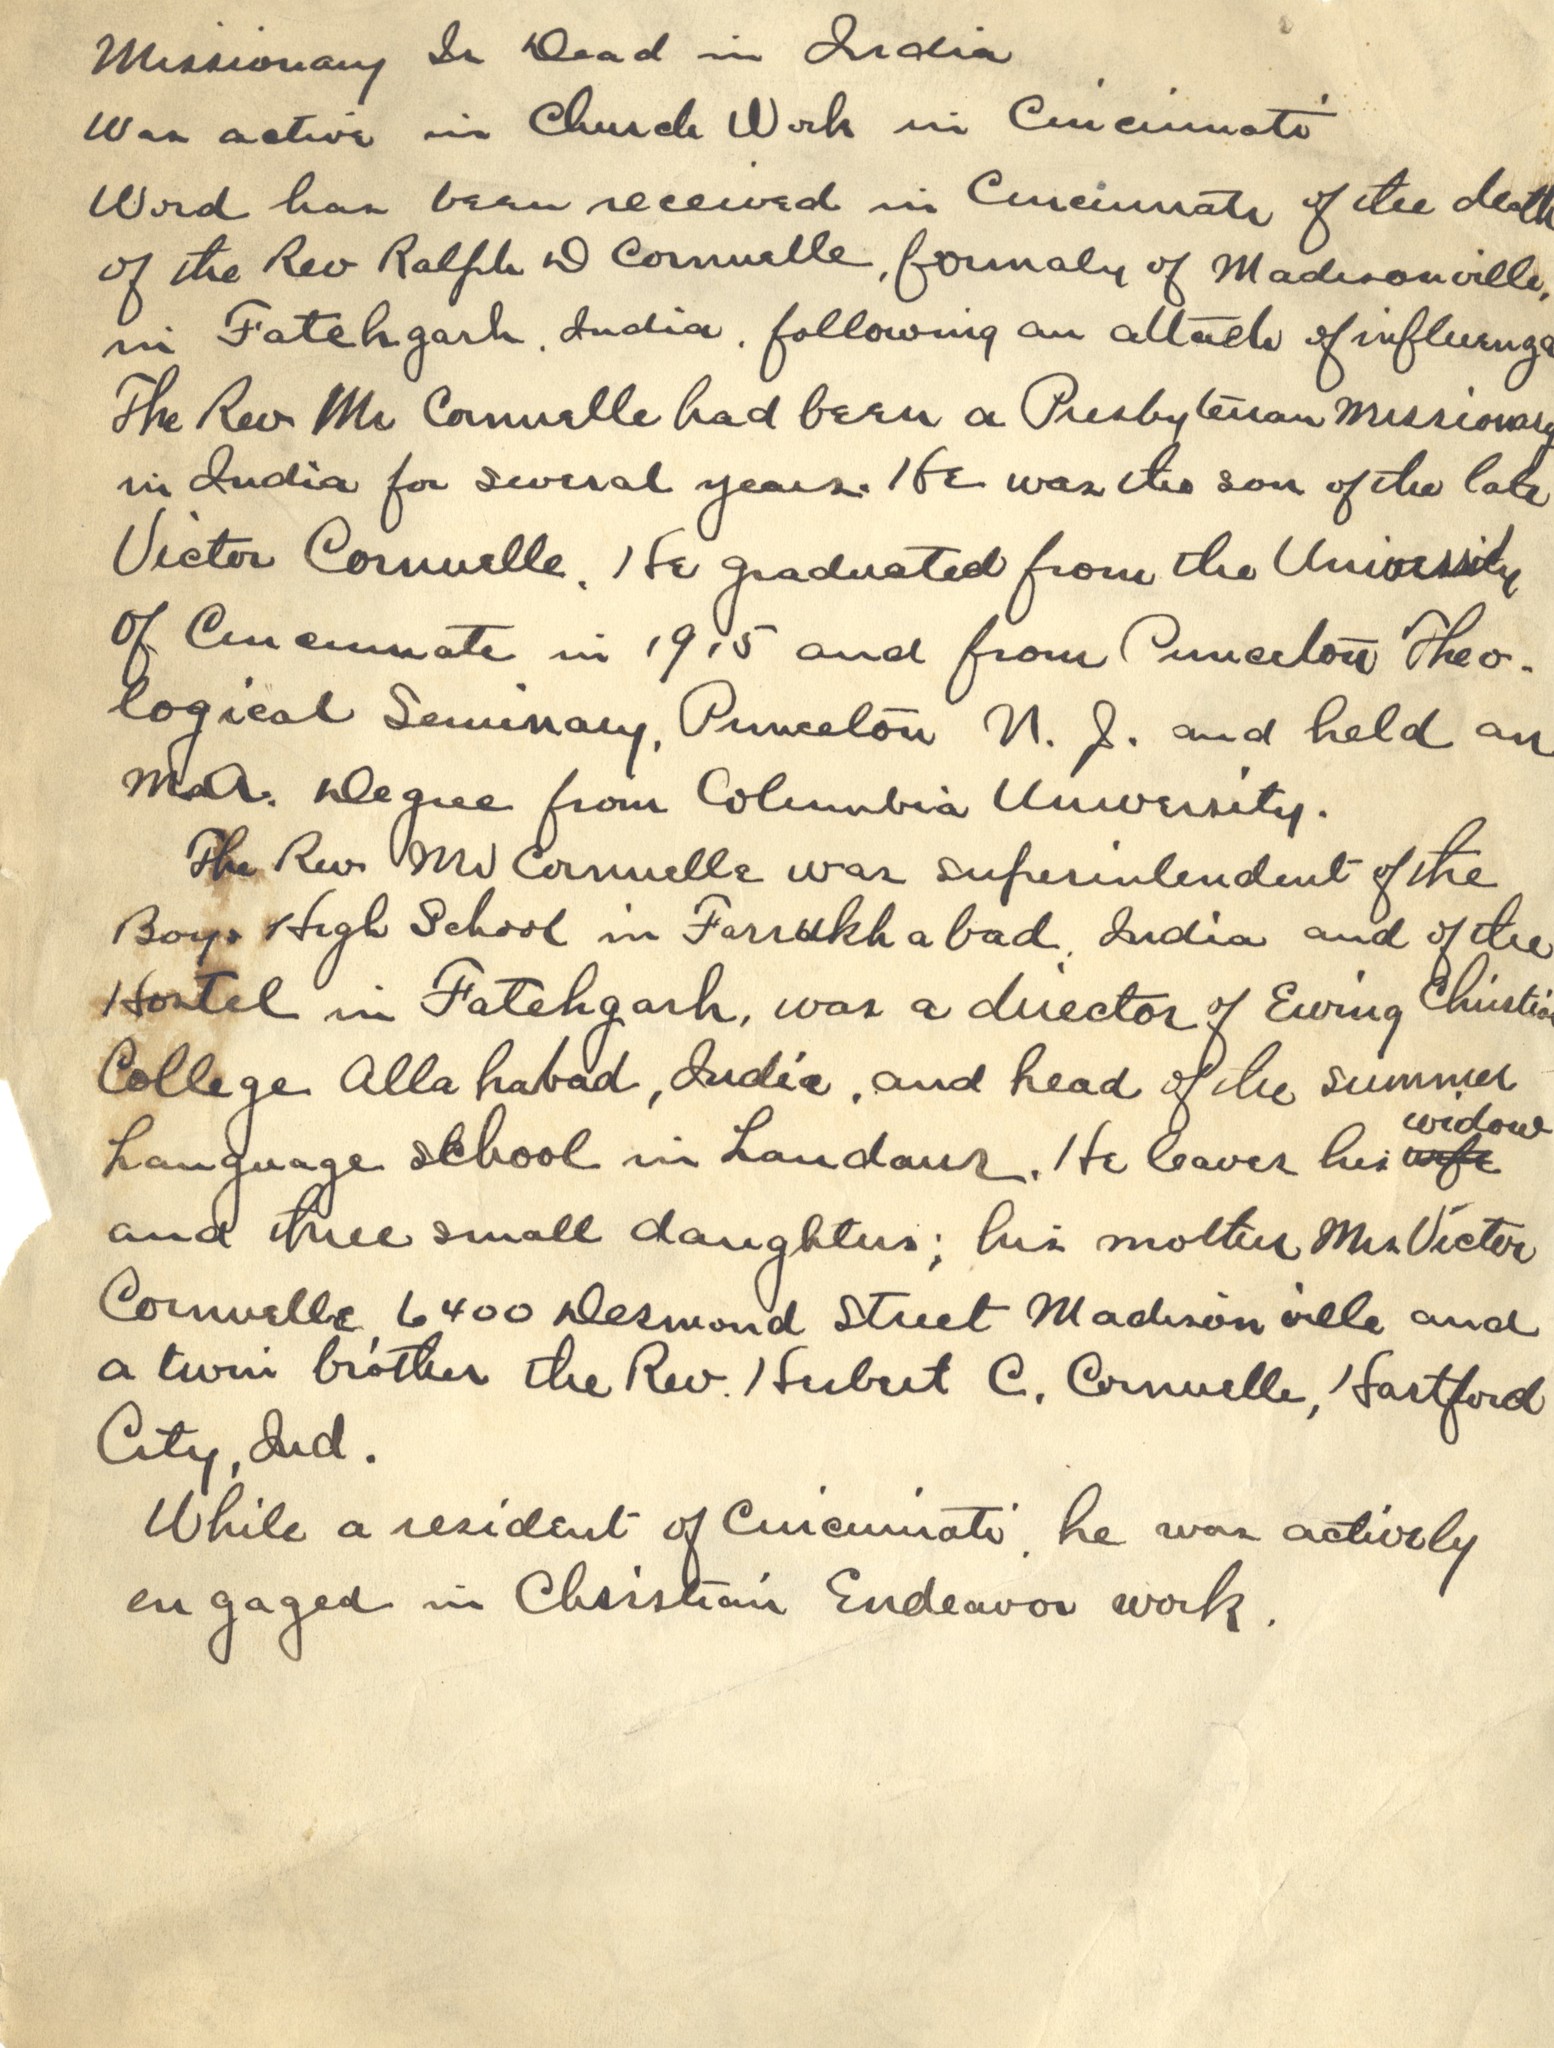 Missionary Is Dead in India
Was active in Church Work in Cincinnati
Word has been received in Cincinnati of the death
of the Rev Ralph D Cornuelle, formaly of Madisonville,
in Fatehgarh, India, following an attack of influenza
The Rev Mr Cornuelle had been a Presbyterian Missionary
in India for several years. He was the son of the late
Victor Cornuelle. He graduated from the University
of Cincinnati in 1915 and from Princeton Theo-
logical Seminary, Princeton N. J. and held an
M.A. Degree from Columbia University.
The Rev Mr Cornuelle was superintendent of the
Boys High School in Farrukhabad, India and of the
Hostel in Fatehgarh, was a director of Ewing Christian
College Allahabad, India, and head of the summer
Language school in Landaur. He leaves his wife widow
and three small daughters; his mother Mrs Victor
Cornuelle, 6400 Desmond Street Madisonville and
a twin brother the Rev. Hubert C. Cornuelle, Hartford
City, Ind.
While a resident of Cincinnati, he was actively
engaged in Christian Endeavor work.